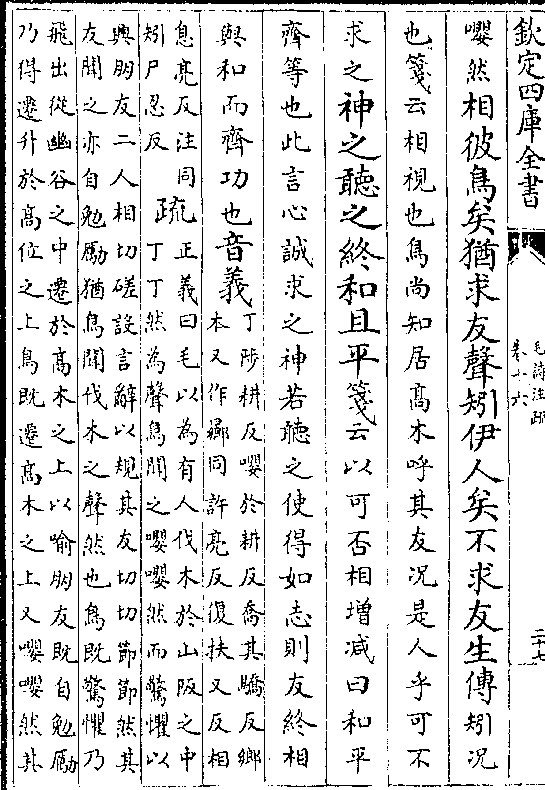 欽定四庫全書
毛詩注疏
卷十六
二十七
嚶然相彼鳥矣猶求友聲矧伊人矣不求友生傳矧況
也箋云相視也鳥尚知居高木呼其友況是人乎可不
求之神之聽之終和且平箋云以可否相增減曰和平
齊等也此言心誠求之神若聽之使得如志則友終相
與和而齊功也音義丁陟耕反嚶於耕反喬其驕反鄉
本又作嚮同許亮反復扶又反相
息亮反注同
矧尸忍反
疏正義曰毛以為有人伐木於山阪之中
丁丁然為聲鳥聞之嚶嚶然而驚懼以
興朋友二人相切磋設言辭以規其友切切節節然其
友聞之亦自勉勵猶鳥聞伐木之聲然也鳥既驚懼乃
飛出從幽谷之中遷於高木之上以喻朋友既自勉勵
乃得遷升於高位之上鳥既遷高木之上又嚶嚶然其